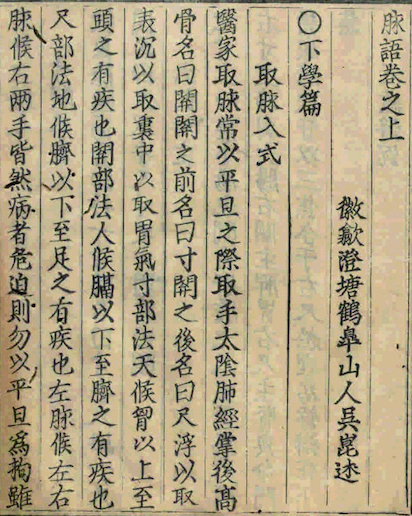 脉語卷之上
徽歙澄塘鶴臯山人吳崑述
○下學篇
取脉入式
醫家取脉常以平旦之際取手太陰肺經掌後高
骨名曰關關之前名曰寸關之後名曰尺浮以取
表沉以取裏中以取胃氣寸部法天候胷以上至
頭之有疾也關部法人候膈以下至臍之有疾也
尺部法地候臍以下至足之有疾也左脉候左右
脉候右兩手皆然病者危迫則勿以平旦爲拘雖